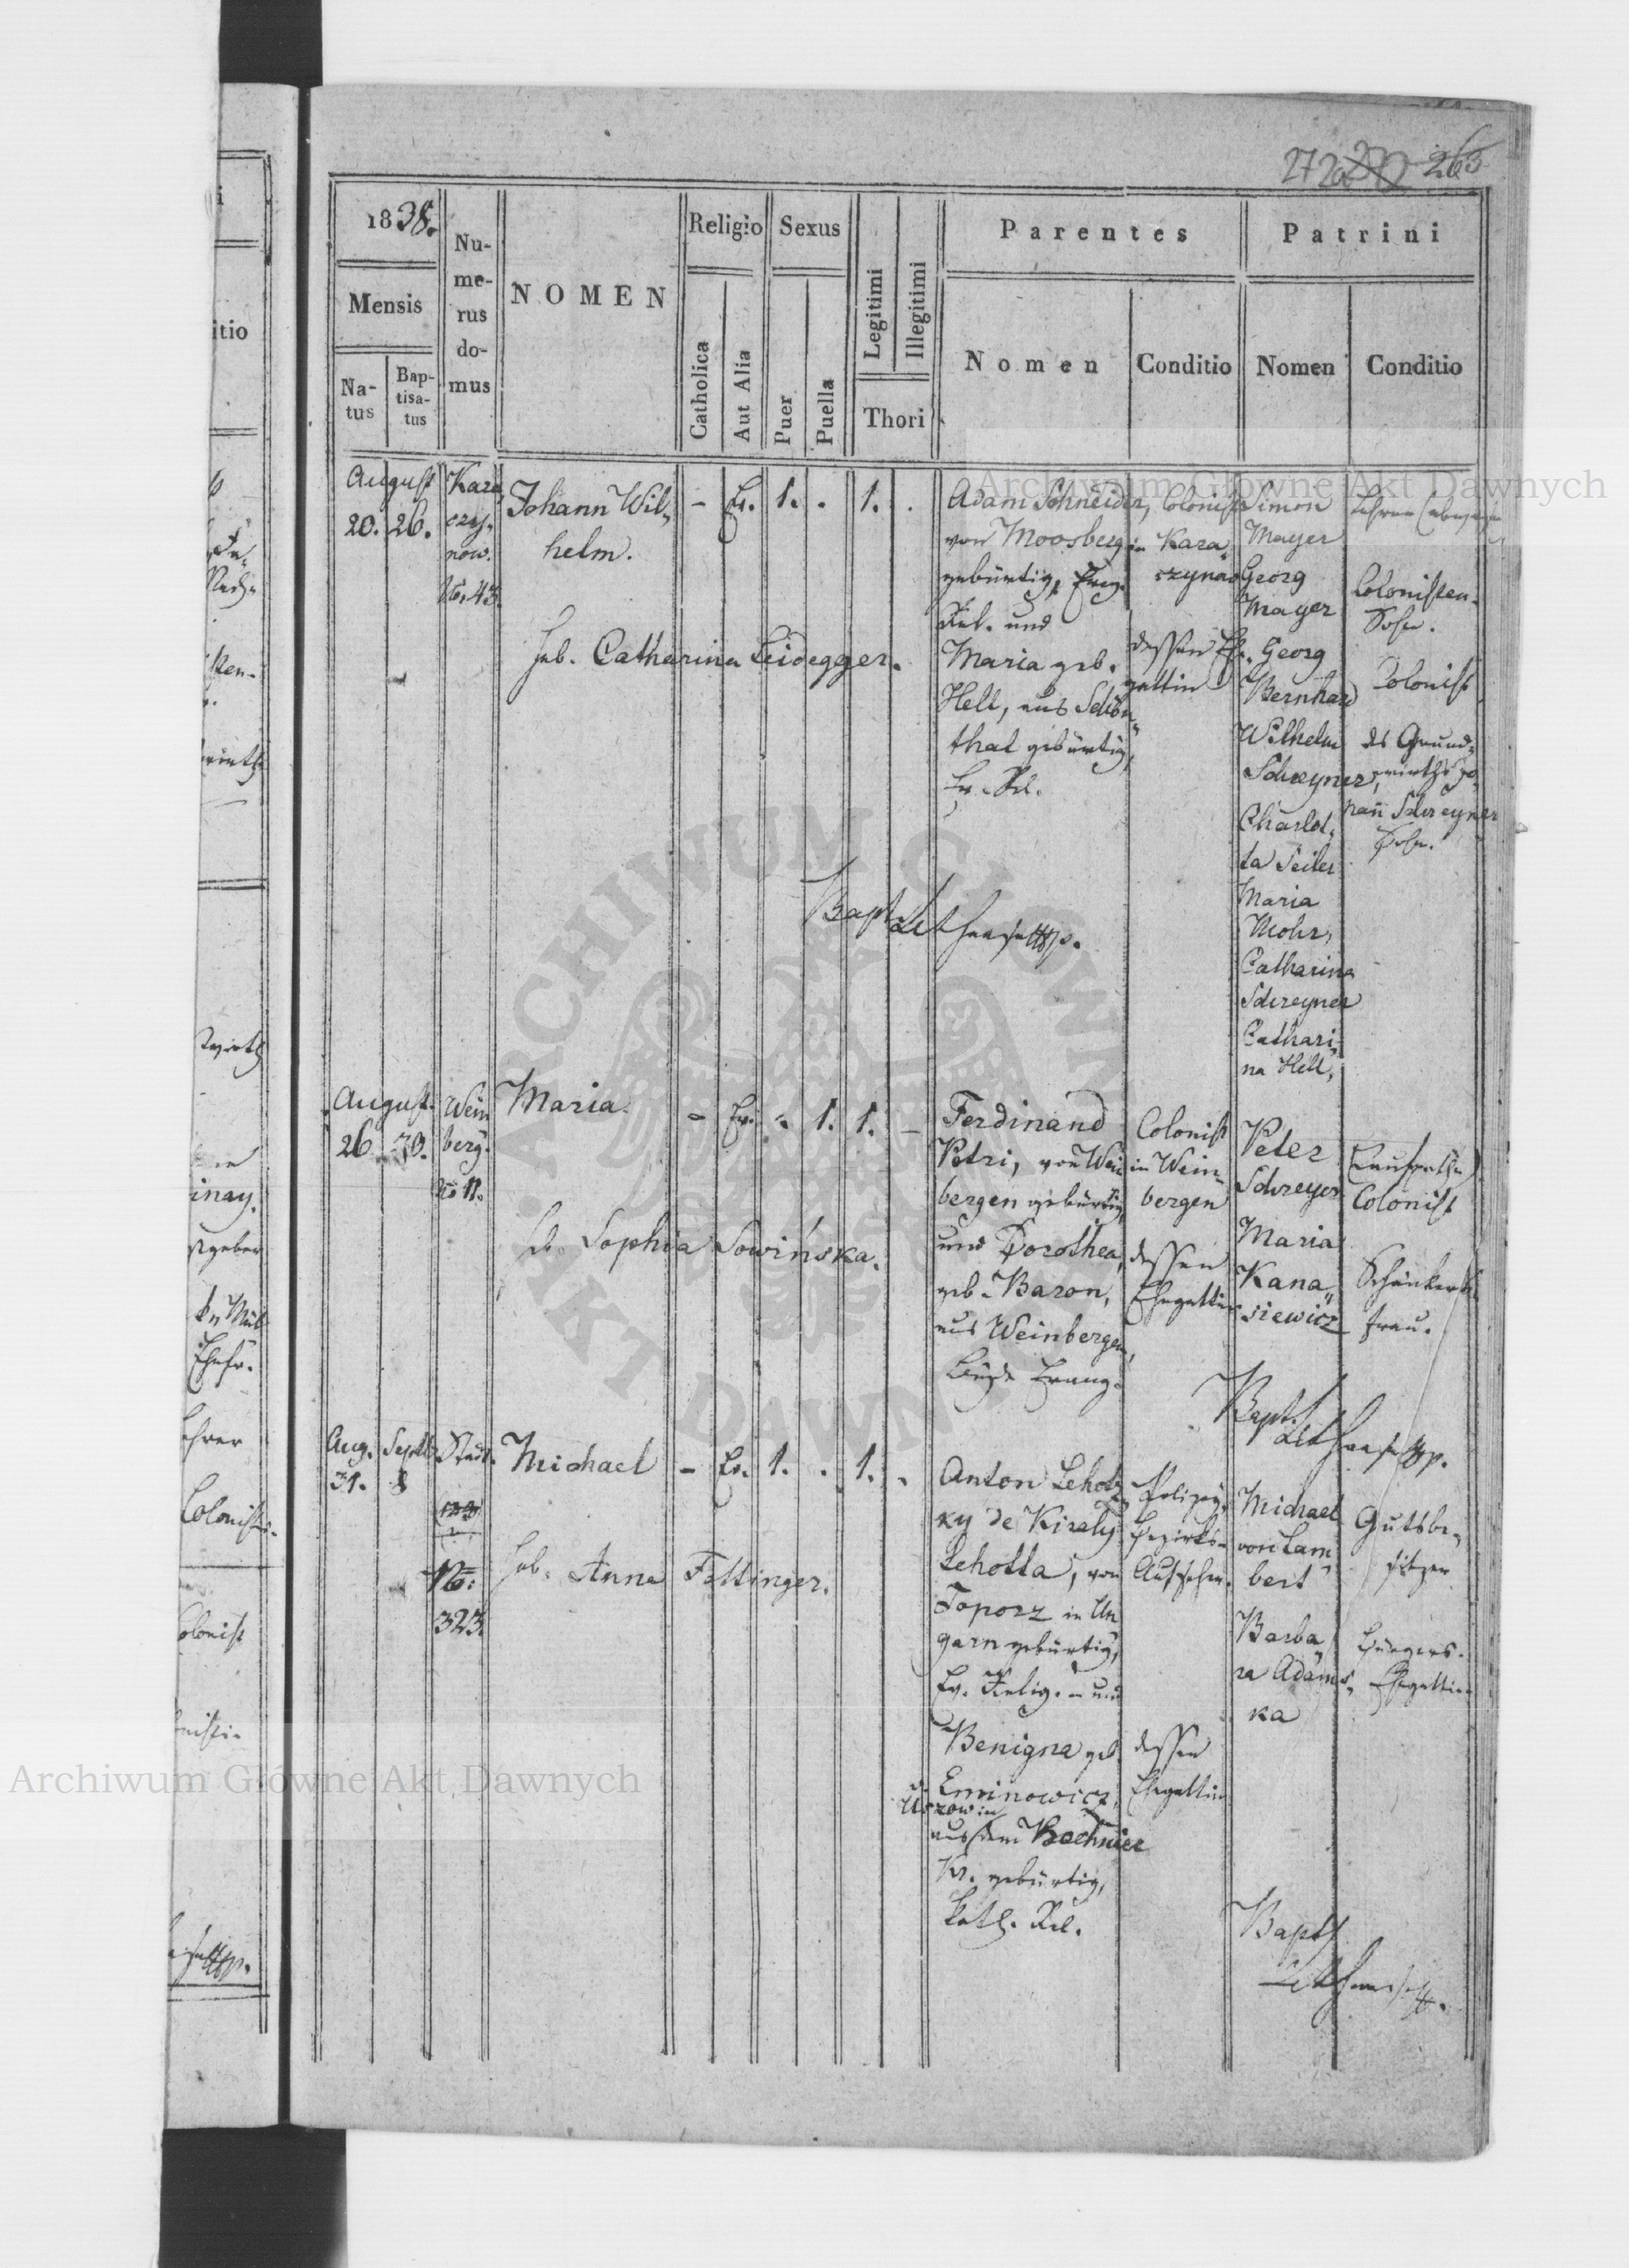 272a 263
1838.
Mensis
Na-
tus
Bap-
tisa-
tus
Nu-
me-
rus
do-
mus
NOMEN
Religio
Catholica
Aut Alia
Sexus
Puer
Puella
Legitimi
Illegitimi
Thori
Parentes
Nomen
Conditio
Patrini
Nomen
Conditio
August
20. 26.
Kara
czy-
now.
No. 43.
Johann Wil-
helm.
Heb. Catharina Leidegger.
- Ev. 1. . 1. .
Adam Schneider,
von Moosberg
gebürtig, Evg.
Rel. und
Maria geb.
Hell, aus Schön-
thal gebürtig,
Ev. Rel.
Colonist
in Kara-
czynow
dessen Eh-
gattin
Simon
Mayer
Georg
Mayer
Georg
Bernhard
Wilhelm
Schreyner,
Charlot-
ta Seiler
Maria
Mohr,
Catharina
Schreyner
Cathari-
na Hell,
Lehrer
Colonisten-
Sohn.
Colonist
des Grund-
wirths Jo-
hann Schreyner
Sohn.
Bapt.
August.
26 30.
Wein
berg.
No 11.
Maria.
Heb. Sophia Sowińska.
- Ev. - 1. 1. -
Ferdinand
Petri, von Wein
bergen gebürtig,
und Dorothea,
geb. Baron,
aus Weinbergen,
beyde Evang.
Colonist
in Wein-
bergen
dessen
Ehegattin
Peter
Schreyer
Maria
Kana-
siewicz
Colonist
Schänkers
frau.
Bapt.
Aug.
31.
Septb
8
Stadt.
No:
323.
Michael
Heb. Anna Fettinger.
- Ev. 1. . 1. .
Anton Lehotz-
ky de Kiraly
Lehotta, von
Toporz in Un
garn gebürtig,
Ev. Relig. - und
Benigna geb
Eminowicz,
Uszow in
aus dem Bochnier
Kr. gebürtig,
kath. Rel.
Polizey-
Bezirks-
Aufseher.
dessen
Ehegattin
Michael
von Lam-
bert
Barba-
ra Adams-
ka
Gutsbe-
sitzer
Bürgers-
Ehegattin
Bapt.
itio
inay.
Colonist
Archiwum Główne Akt Dawnych
ARCHIWUM GŁÓWNE AKT DAWNYCH
Archiwum Główne Akt Dawnych